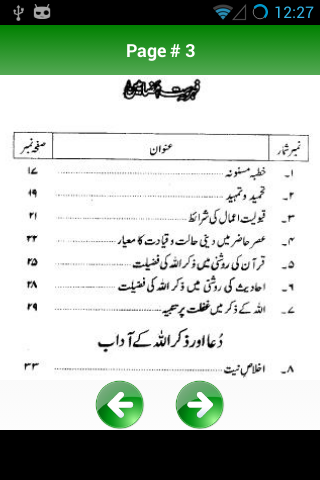 12:27
Page # 3
فہرست مضامین
نمبر شمار عنوان صفحہ نمبر
۱۔ خطبہ مسنونہ ۱۷
۲۔ تحمید و تمہید ۱۹
۳۔ قبولیت اعمال کی شرائط ۲۱
۴۔ عصر حاضر میں دینی حالت و قیادت کا معیار ۲۲
۵۔ قرآن کی روشنی میں ذکر اللہ کی فضیلت ۲۵
۶۔ احادیث کی روشنی میں ذکر اللہ کی فضیلت ۲۸
۷۔ اللہ کے ذکر میں غفلت پر تنبیہ ۲۹
دُعا اور ذکر اللہ کے آداب
۸۔ اخلاصِ نیت ۳۳